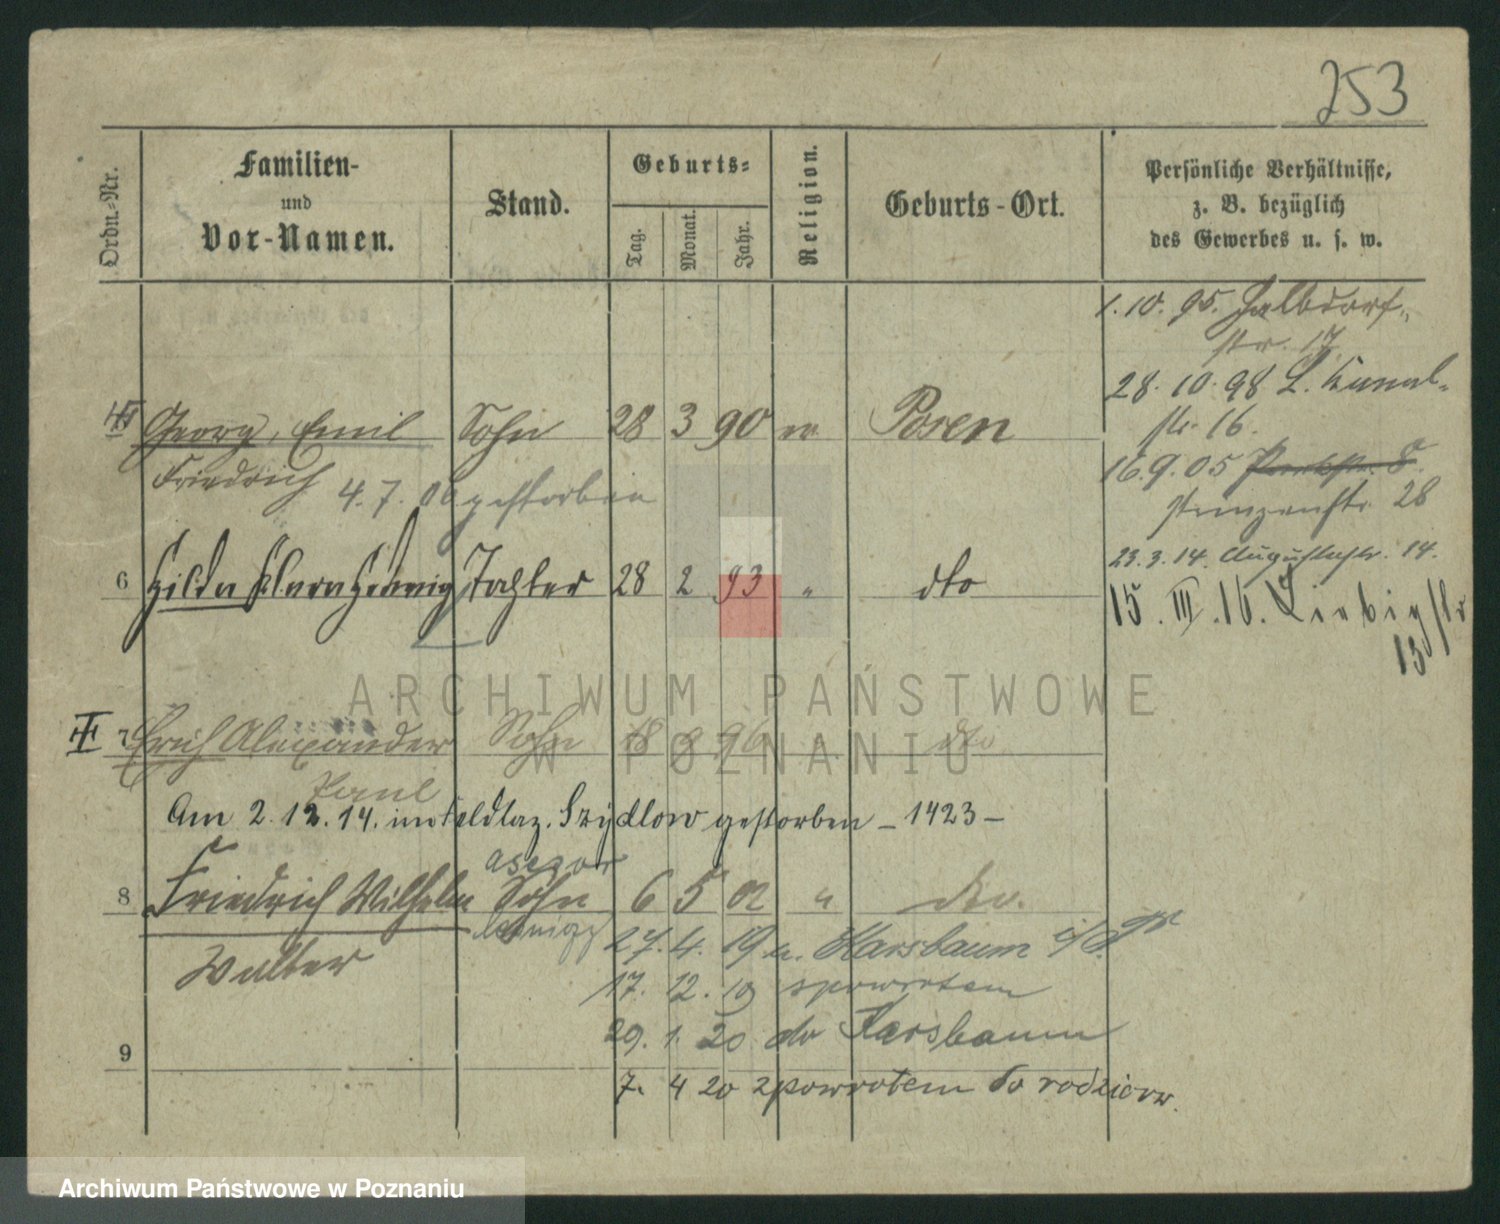 253
Ordn.-Nr.
Familien-
und
Vor-Namen.
Stand.
Geburts-
Tag.
Monat.
Jahr.
Religion.
Geburts-Ort.
Persönliche Verhältnisse,
z. B. bezüglich
des Gewerbes u. s. w.
1.10.95. Halbdorf-
str. 17
28.10.98 L. Kanal-
str. 16.
Georg, Emil Sohn 28 3 90 Posen
Friedrich 4.7.06 gestorben
16.9.05
28
6 Hilda Klara Hedwig Tochter 28 2 93 " dto
23.3.14. Augustastr. 14.
15. III. 16. Liebigstr
13
7 Erich Alexander Sohn 18 96 " dto
Paul
Am 2.12.14. im Feldlaz. Szydlow gestorben - 1423 -
8 Friedrich Wilhelm Sohn 6 5 02 " dto.
Walter
27.4.19 n. Karsbaum
17.12.19 spowrotem
29.1.20 do Karsbaum
9
7. 4 20 zpowrotem do rodziców.
ARCHIWUM PAŃSTWOWE
W POZNANIU
Archiwum Państwowe w Poznaniu